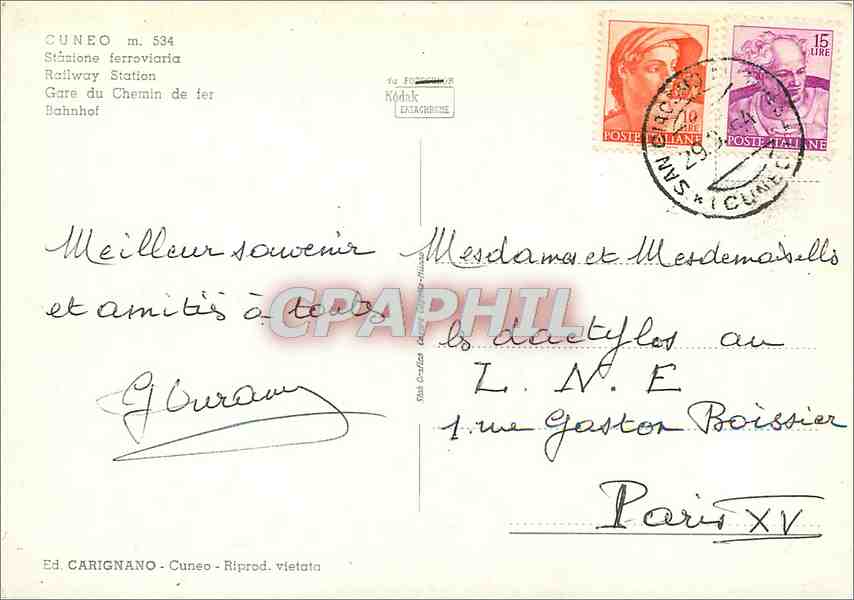 CUNEO m. 534
Stazione ferroviaria
Railway Station
Gare du Chemin de fer
Bahnhof
Kodak
EKTACHROME
10
LIRE
POSTE ITALIANE
15
LIRE
POSTE ITALIANE
(CUNEO)
Meilleur souvenir
et amitiés à toutes
Mesdames et Mesdemoiselles
les dactylos au
L. N. E
1. rue Gaston Boissier
Paris XV
CPAPHIL
Ed. CARIGNANO - Cuneo - Riprod. vietata